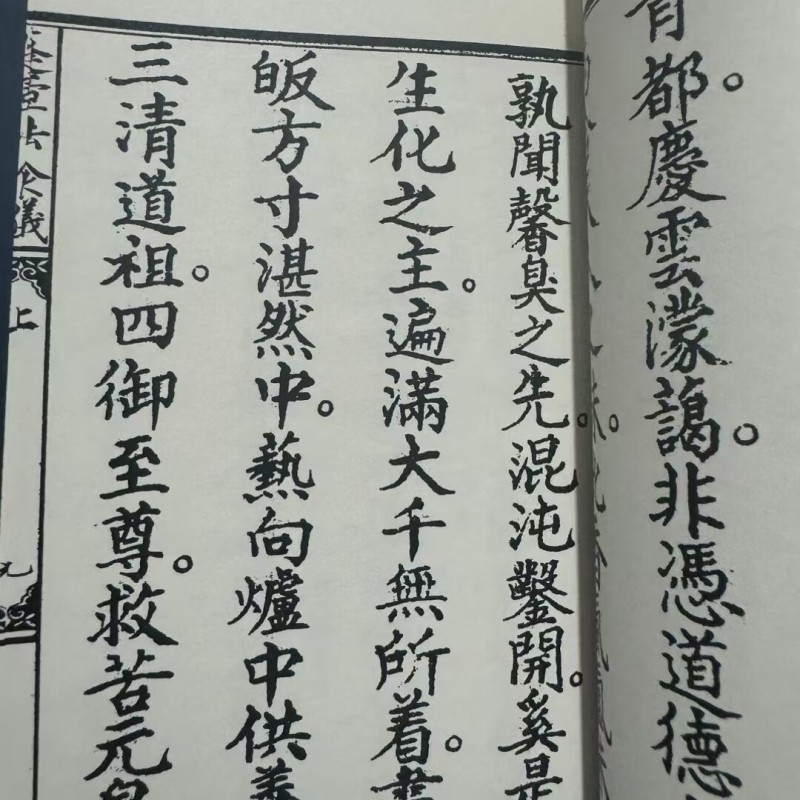 都慶雲濛藹。非憑道德
孰聞馨臭之先。混沌鑿開。奚是
生化之主。遍滿大千無所着。
皈方寸湛然中。爇向爐中供養
三清道祖。四御至尊。救苦元
上